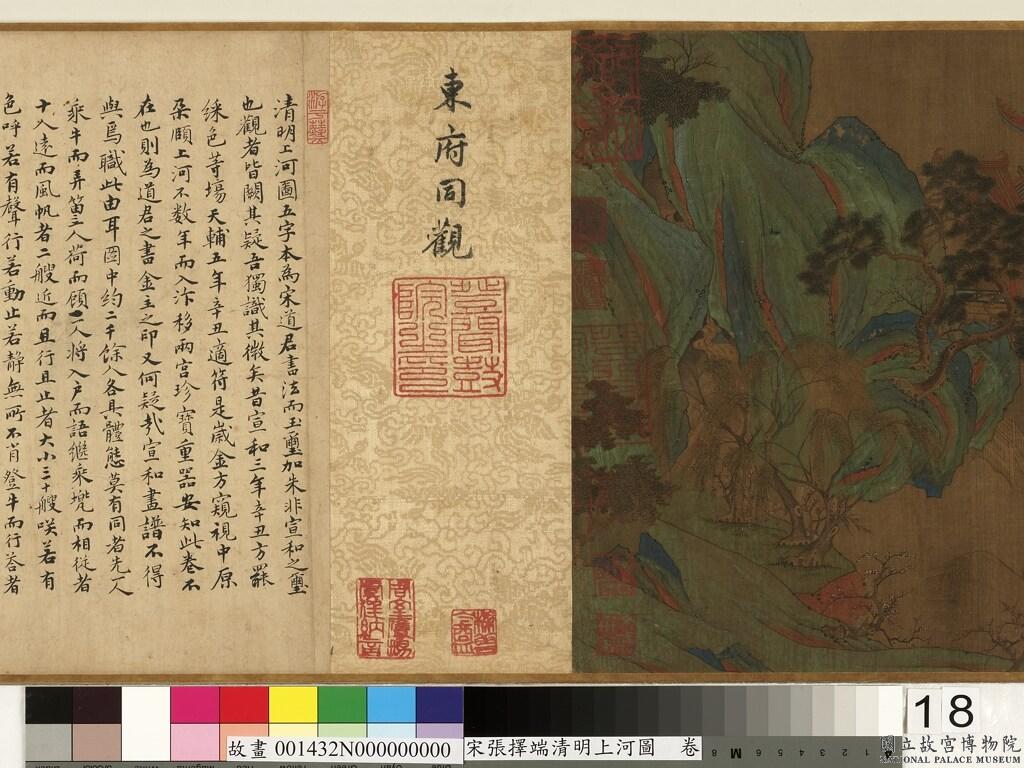 東府同觀
清明上河圖五字本為宋道君書法而玉璽加朱非宣和之璽
也觀者皆闕其疑吾獨識其微矣昔宣和三年辛丑方羆
綵色芋塲天輔五年辛丑適符是嵗金方窺視中原
朶頤上河不数年而入汴移兩宫珍寶重器安知此卷不
在也則為道君之書金主之印又何疑哉宣和畫譜不得
與焉職此由耳圖中約二千餘人各具體態莫有同者先人
乘牛而弄笛三人荷而顧二人將入户而語繼乘而相從者
十人遠而風帆者二艘近而且行且止者大小三十艘咲若有
色呼若有聲行若動止若靜無所不肖登牛而行荅者
故畫 001432N000000000 宋張擇端清明上河圖 卷
8 M 8 9 5 4 3 2 1
18
國立故宮博物院
NATIONAL PALACE MUSEUM